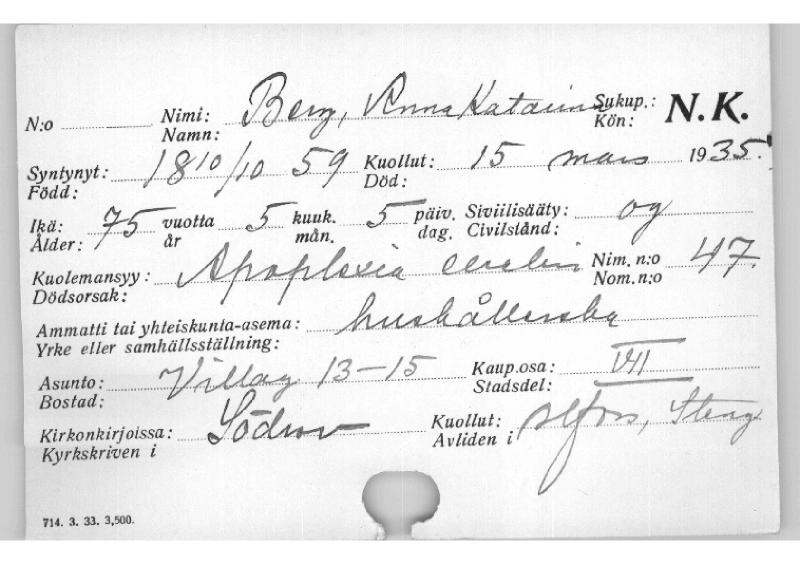 N:o Nimi: Berg, Anna Katarina Sukup.: N. K.
Namn: Kön:
Syntynyt: 18 10/10 59 Kuollut: 15 mars 1935.
Född: Död:
Ikä: 75 vuotta 5 kuuk. 5 päiv. Siviilisääty: og
Ålder: år mån. dag. Civilstånd:
Kuolemansyy: Apoplexia cerebri Nim. n:o 47.
Dödsorsak: Nom. n:o
Ammatti tai yhteiskunta-asema: hushållerska
Yrke eller samhällsställning:
Asunto: Villag 13-15 Kaup.osa: VII
Bostad: Stadsdel:
Kirkonkirjoissa: Södra Kuollut:
Kyrkskriven i Avliden i
714. 3. 33. 3,500.